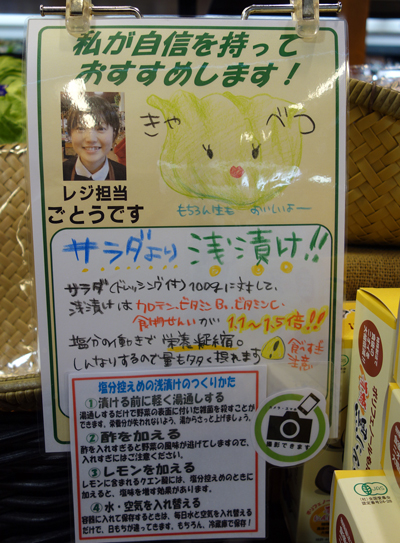 私が自信を持って
おすすめします！
レジ担当
ごとうです
きゃべつ
もちろん生も おいしいよー
サラダより 浅漬け!!
サラダ(ドレッシング付)100gに対して、
浅漬けは カロテン、ビタミンB₁、ビタミンC、
食物せんいが 1.1〜1.5倍!!
塩分の働きで 栄養凝縮。
しんなりするので量も多く摂れます
食べすぎ
注意
塩分控えめの浅漬けのつくりかた
①漬ける前に軽く湯通しする
湯通しするだけで野菜の表面に付いた雑菌を殺すことが
できます。栄養分が失われないよう、湯からさっと上げましょう。
②酢を加える
酢を入れすぎると野菜の風味が逃げてしますので、
入れすぎにはご注意ください。
③レモンを加える
レモンに含まれるクエン酸には、塩分控えめのときに
加えると、塩味を増す効果があります。
④水・空気を入れ替える
容器に入れて保存するときは、毎日水と空気を入れ替える
だけで、日もちが違ってきます。もちろん、冷蔵庫で保存！
撮影できます
JAS